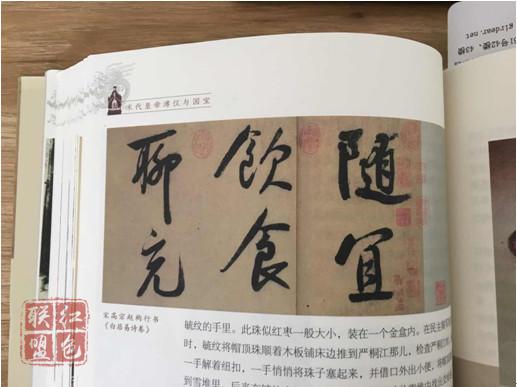 末代皇帝溥仪与国宝
随宜
饮食
聊充
宋高宗赵构行书
《白居易诗卷》
毓纹的手里。此珠似红枣一般大小，装在一个金盒内。在民主
时，毓纹将帽顶珠顺着木板铺床边推到严桐江那儿，检查严桐江
一手解着纽扣，一手悄悄将珠子塞起来，并借口外出小便，将
到雪堆里。
红色
联盟
31号42楼、43楼
girdear.net